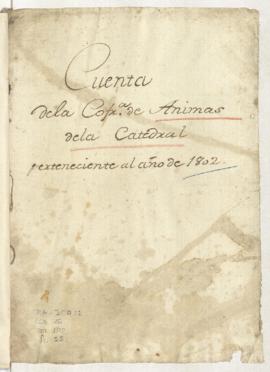 Cuenta
dela Cofr.ª de Animas
dela Catedral
perteneciente al año de 1802.